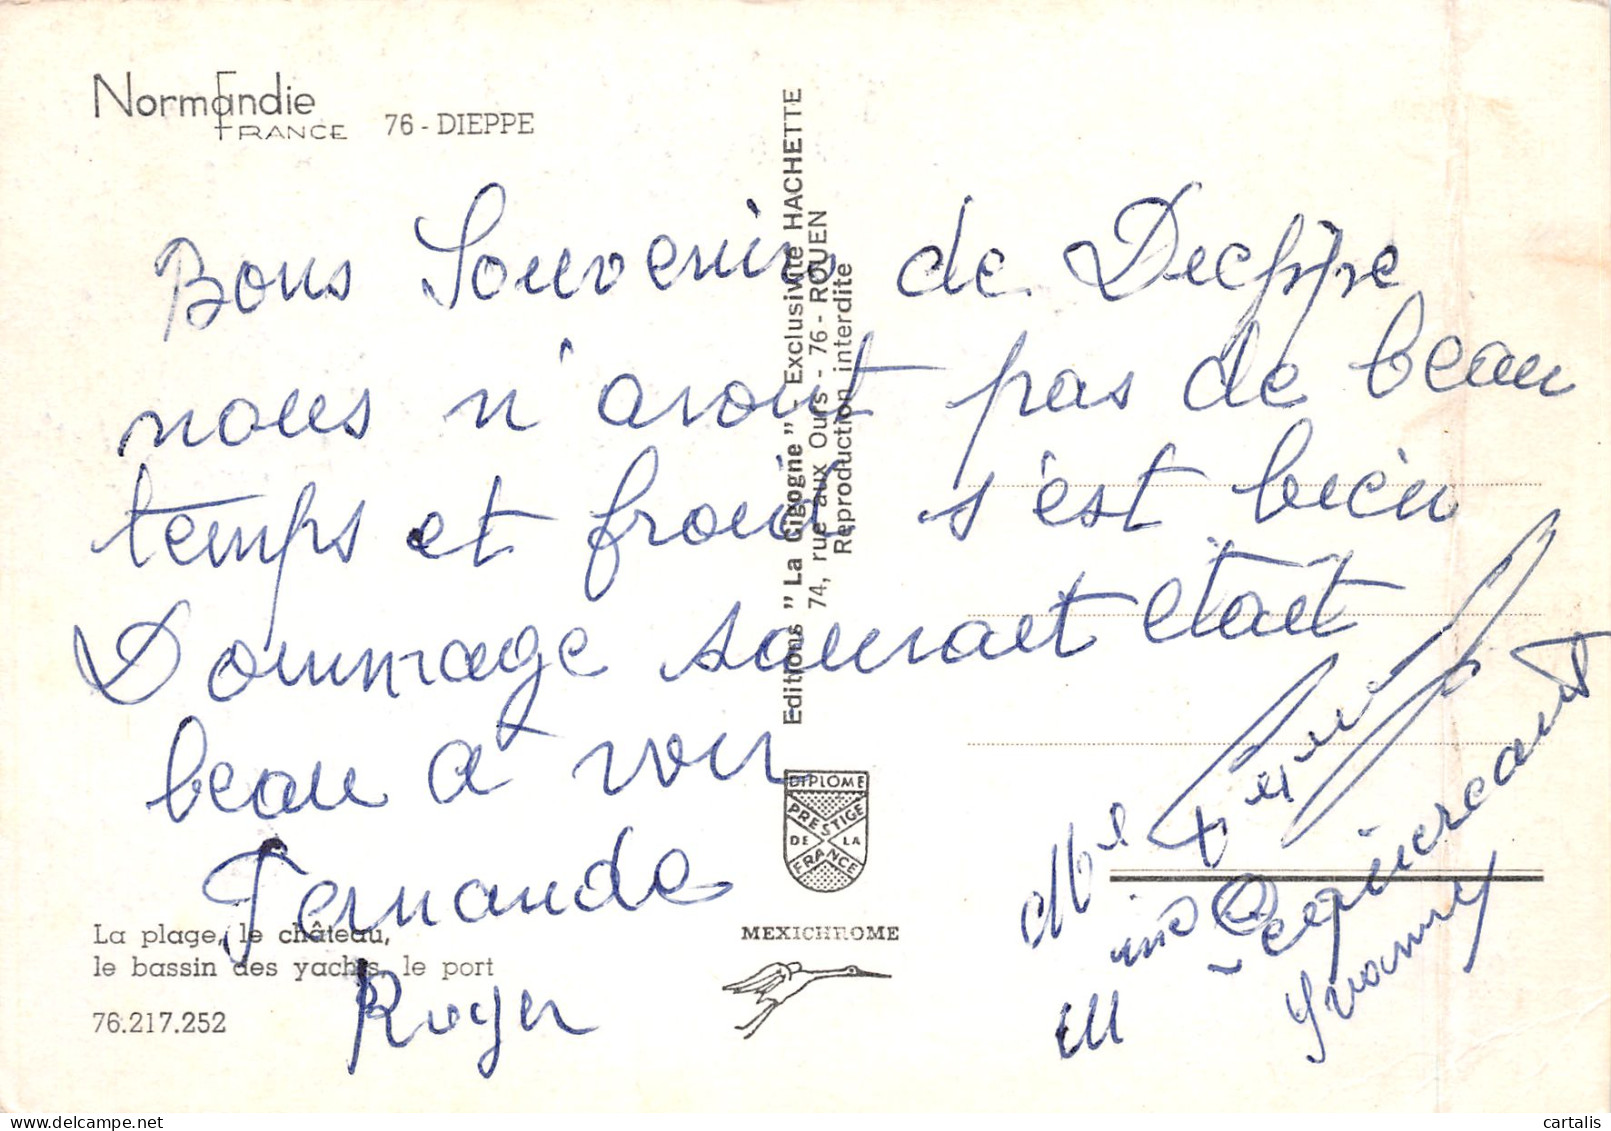 Normandie
FRANCE
76 - DIEPPE
Bons Souvenir de Dieppe
nous n'avont pas de beau
temps et froid s'est bien
Dommage saurait était
beau a voir
Fernande
Roger
La plage, le château,
le bassin des yachts, le port
76.217.252
Editions "La Cigogne" - Exclusivité HACHETTE
74, rue aux Ours - 76 - ROUEN
Reproduction interdite
DIPLOME
PRESTIGE
DE LA
FRANCE
MEXICHROME
Yvonne
cartalis